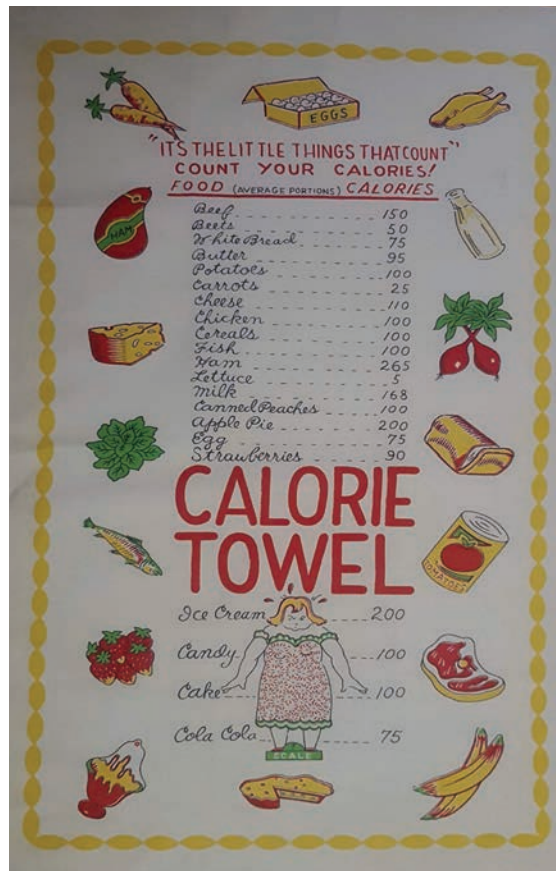 EGGS
"ITS THE LITTLE THINGS THAT COUNT"
COUNT YOUR CALORIES!
FOOD (AVERAGE PORTIONS) CALORIES
HAM
Beef 150
Beets 50
White Bread 75
Butter 95
Potatoes 100
Carrots 25
Cheese 110
Chicken 100
Cereals 100
Fish 100
Ham 265
Lettuce 5
Milk 168
Canned Peaches 100
Apple Pie 200
Egg 75
Strawberries 90
CALORIE
TOWEL
TOMATOES
Ice Cream 200
Candy 100
Cake 100
Cola Cola 75
SCALE